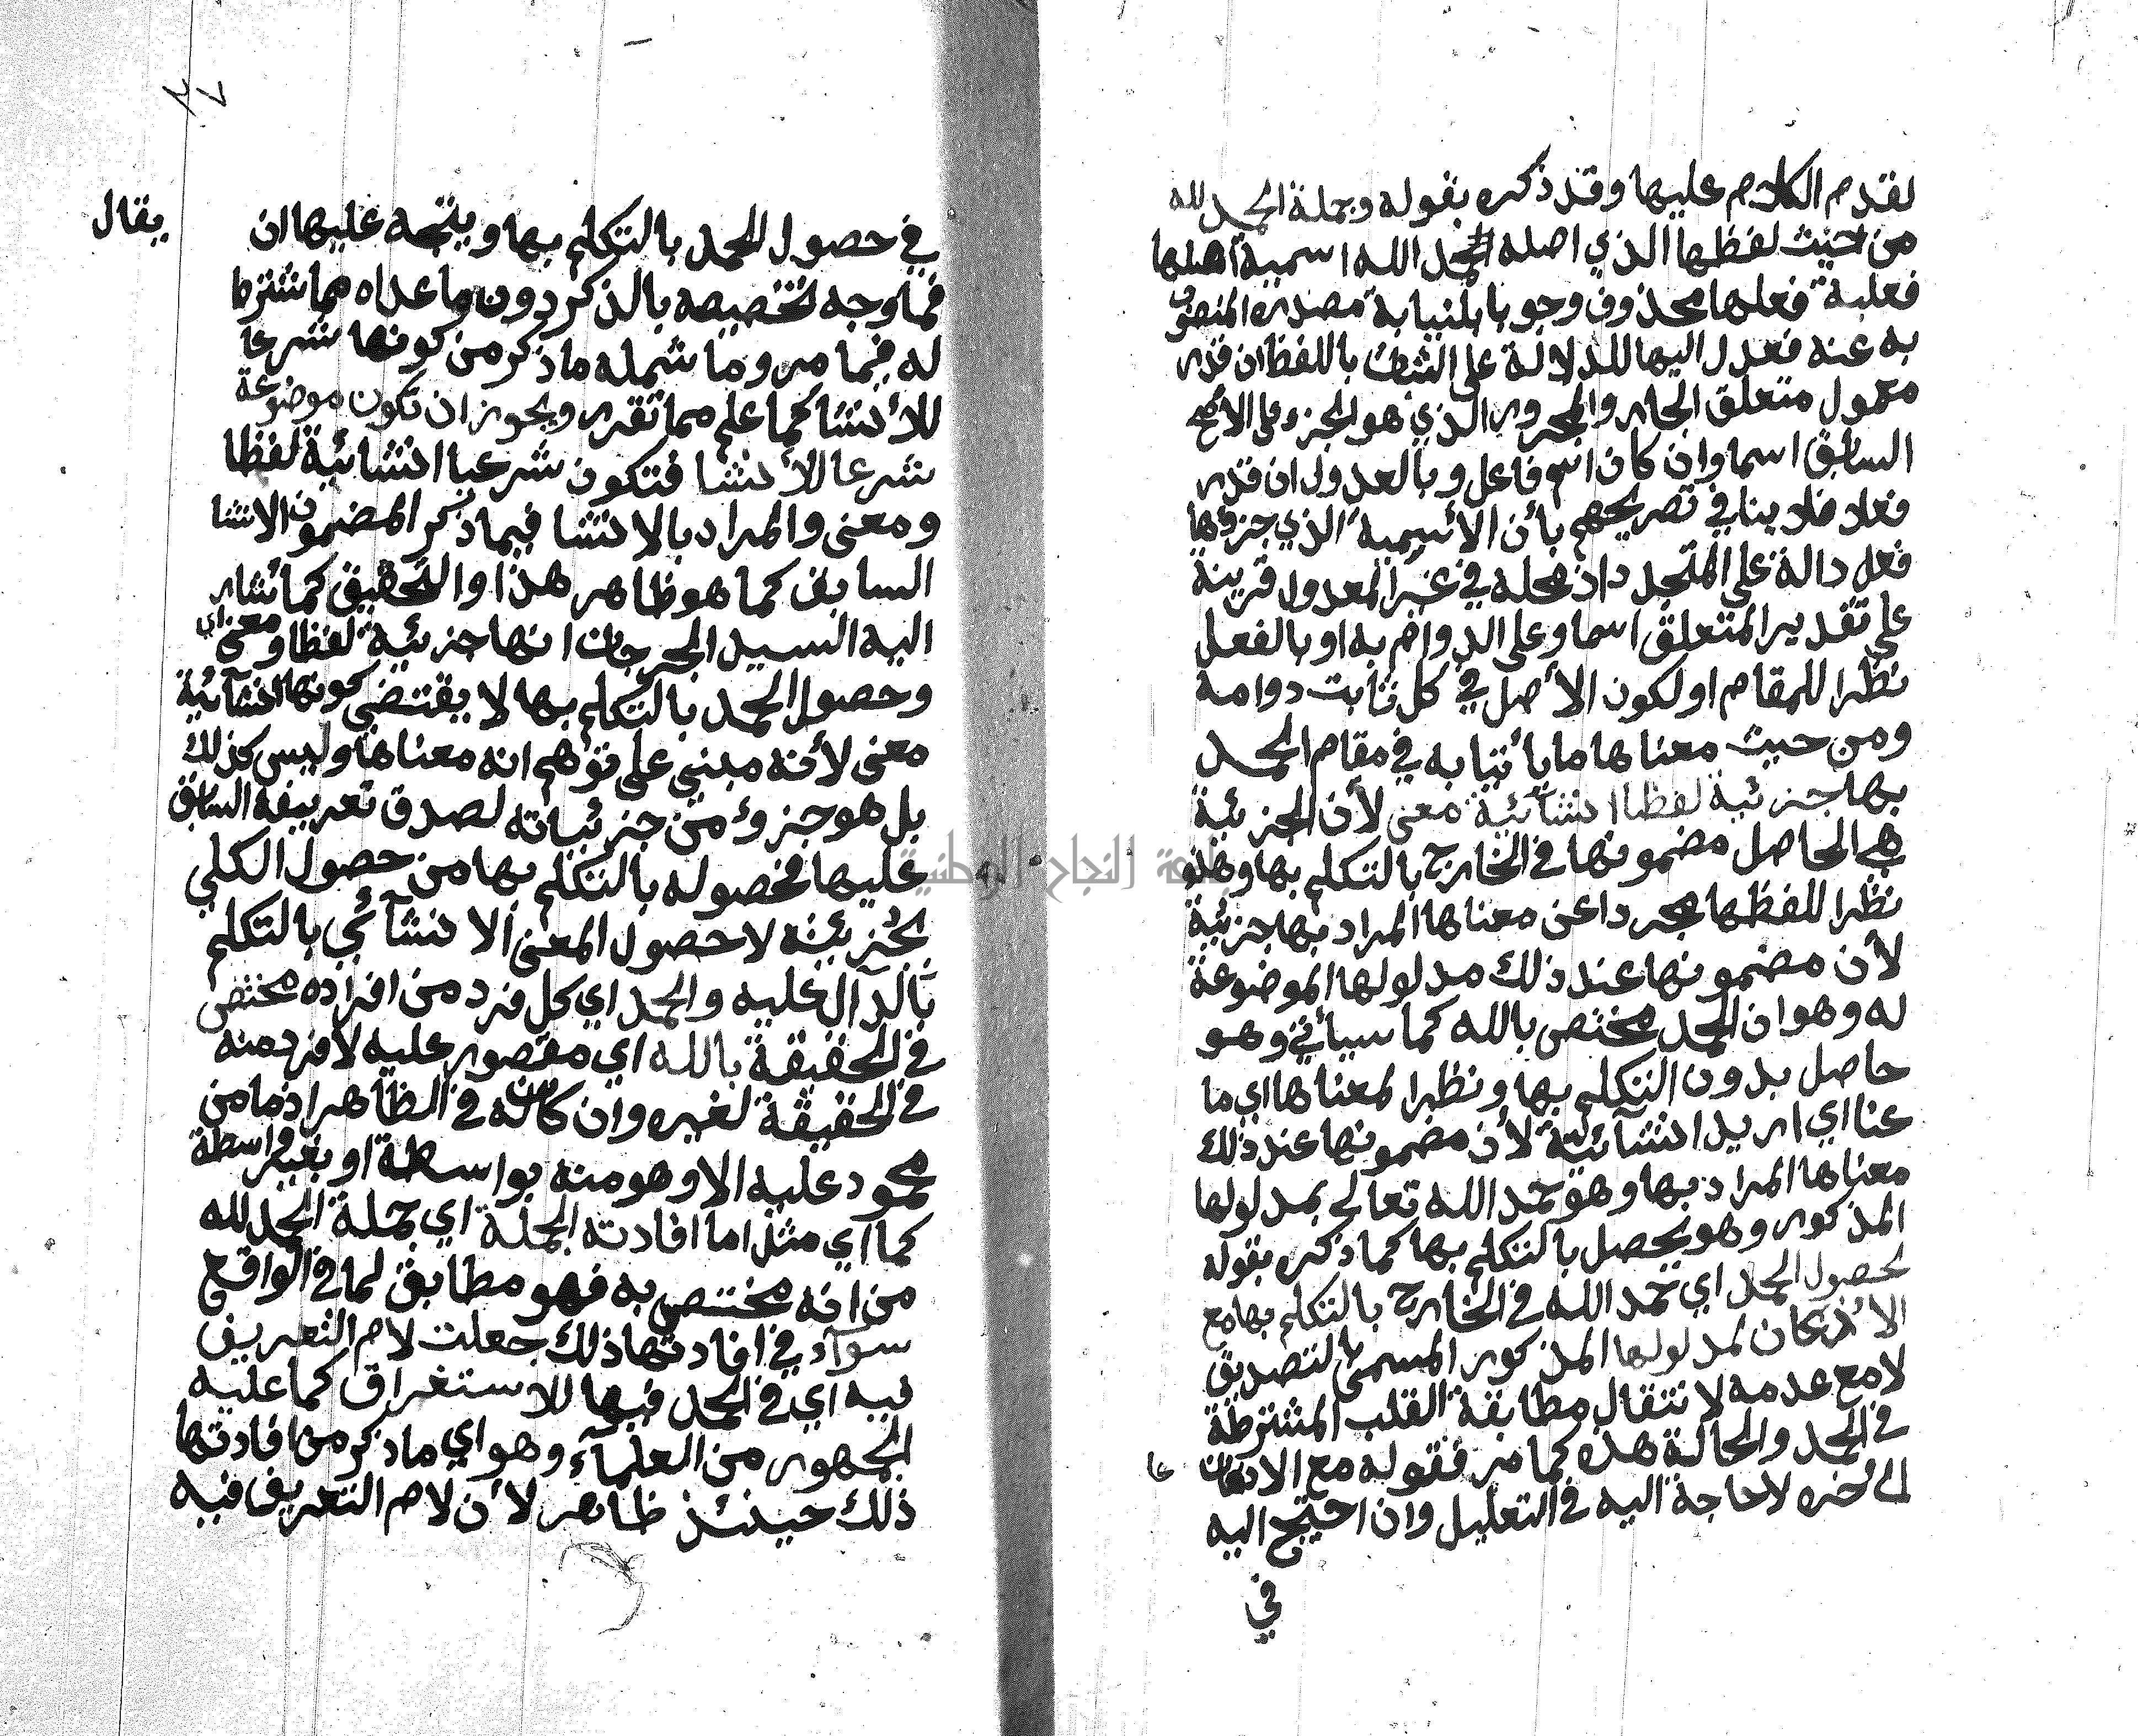 لتقدم الكلام عليها وقد ذكره بقوله وجملة الحمد لله
من حيث لفظها الذي اصله الحمد الله اسمية اصلها
فعلية فعلها محذوف وجوبا لنيابة مصدره المنصوب
به عنه فعدل اليها للدلالة على الثبات باللفظ ان قدر
معمول متعلق الجار والمجرور الذي هو الجزء على الأصح
السابق اسما وان كان اسم فاعل وبالعدول ان قدر
فعلا فلا ينافي تصريحهم بأن الأسمية الذي جزؤها
فعل دالة على التجدد اذ محله في غير المعدول قرينة
على تقدير المتعلق اسما وعلى الدوام به او بالفعل
نظرا للمقام او لكون الأصل في كل ثابت دوامه
ومن حيث معناها ما يأتيا به في مقام الحمد
بها جزئية لفظا انشآئية معنى لأن الجزئية
هي الحاصل مضمونها في الخارج بالتكلم بها وهذه
نظرا للفظها مجردا عن معناها المراد بها جزئية
لأن مضمونها عند ذلك مدلولها الموضوعة
له وهو ان الحمد مختص بالله كما سيأتي وهو
حاصل بدون التكلم بها ونظرا لمعناها اي ما
عنا اي اريد انشآئية لأن مضمونها عند ذلك
معناها المراد بها وهو حمد الله تعالى بمدلولها
المذكور وهو يحصل بالتكلم بها كما ذكره بقوله
لحصول الحمد اي حمد الله في الخارج بالتكلم بها مع
الأذعان لمدلولها المذكور المسمى بالتصديق
لا مع عدمه لانتقال مطابقة القلب المشترطة
في الحمد والحالة هذه كما مر فقوله مع الاذعان
الى اخره لا حاجة اليه في التعليل وان احتيج اليه
في
في حصول الحمد بالتكلم بها ويتجه عليها ان
يقال
فما وجه تخصيصه بالذكر دون ما عداه مما شترط
له فيما مر وما شمله ما ذكر من كونها شرعا
للأنشا كما علم مما تقرر ويجوز ان تكون موضوعة
شرعا للأنشا فتكون شرعيا انشائية لفظا
ومعنى والمراد بالانشا فيما ذكر المضمون الانشا
السابق كما هو ظاهر هذا والتحقيق كما اشار
اليه السيد الجرجان انها جزئية لفظا ومعنى اي
وحصول الحمد بالتكلم بها لا يقتضي كونها انشآئية
معنى لأنه مبني على توهم انه معناها وليس كذلك
بل هو جزؤ من جزئياته لصدق تعريفه السابق
عليها فحصوله بالتكلم بها من حصول الكلي
بجزئيه لا حصول المعنى الانشآئي بالتكلم
بالدآل عليه والحمد اي كل فرد من افراده مختص
في الحقيقة بالله اي مقصور عليه لا فرد منه
في الحقيقة لغيره وان كان له في الظاهر اذ ما من
محمود عليه الا وهو منه بواسطة او بغير واسطة
كما اي مثل ما افادته الجملة اي جملة الحمد لله
من انه مختص به فهو مطابق لما في الواقع
سوآء في افادتها ذلك جعلت لام التعريف
فيه اي في الحمد فيها للاستغراق كما عليه
الجمهور من العلمآء وهو اي ما ذكر من افادتها
ذلك حينئذ ظاهر لأن لام التعريف فيه